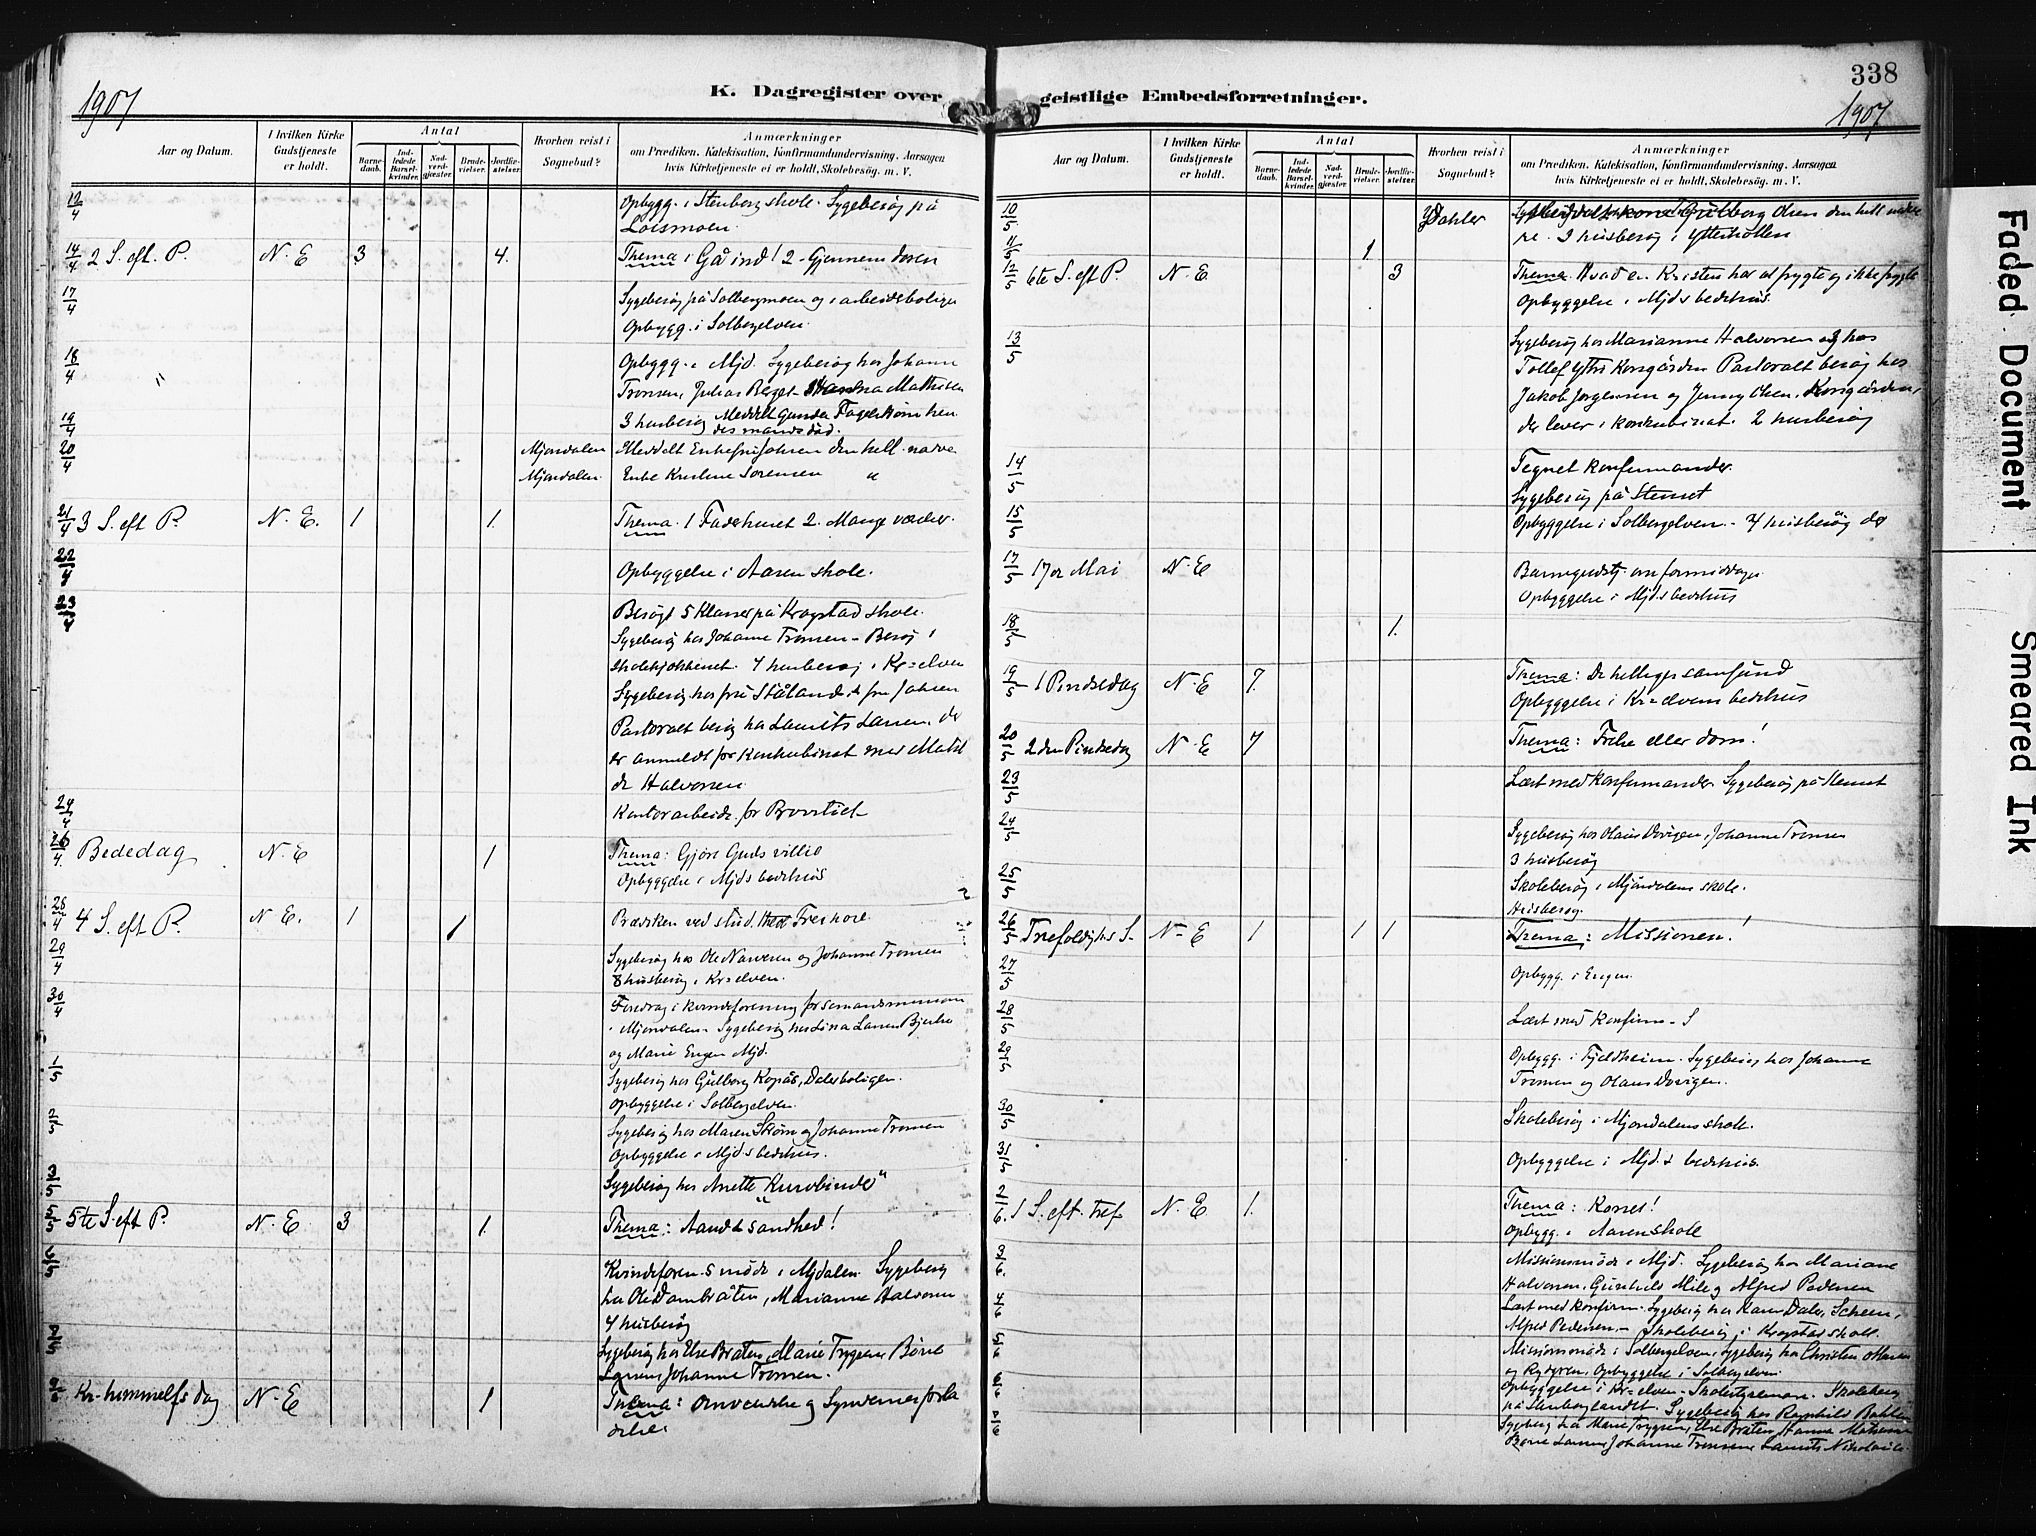 338
1907
K. Dagregister over geistlige Embedsforretninger.
1907
Aar og Datum.
I hvilken Kirke Gudstjeneste er holdt.
Antal
Barnedaab.
Indledede Barselkvinder.
Nadverdgjæster.
Brudevielser.
Jordfæstelser.
Hvorhen reist i Sognebud?
Anmærkninger
om Prædiken, Katekisation, Konfirmandundervisning, Aarsagen
hvis Kirketjeneste ei er holdt, Skolebesøg. m. V.
Opbygg. i Stenberg skole. Sygebesøg på
14/4 2 S. eft. P. N. E 3 4. Thema: Gå ind! 2 Gjennem døren
17/4 Sygebesøg på Solbergmoen og i arbeideboliger
Opbygg. i Solbergelven.
18/4 Opbygg. i Mjd. Sygebesøg hos Johanne
Tronsen, Julius Berget
19/4 3 husbesøg Meddelt Gunda Fagerstrøm hen
des mands død.
20/4 Mjøndalen Meddelt Enkefru Johnsen den hell. nadve
Mjøndalen Enke Kristine Sørensen "
21/4 3 S. eft P. N. E. 1 1. Thema. 1 Faderhuset 2. Mange værelser.
22/4 Opbyggelse i Aasen skole.
23/4 Besøgt 5 Klasser på Krogstad skole.
Sygebesøg hos Johanne Tronsen - Besøg i
skolekjøkkenet. 4 husbesøg i Kr-elven
Sygebesøg hos fru Ståland & fru Johnsen
Pastoralt besøg hos Laurits Larsen, der
er anmeldt for Konkubinat med Matil
de Halvorsen.
24/4 Kontorarbeide for Provstiet
26/4 Bededag N. E 1 Thema: Gjøre Guds villie
Opbyggelse i Mjds bedehus
28/4 4 S. eft P. N. E. 1 1 Prædiken ved stud.
29/4 Sygebesøg hos Ole Narvesen og Johanne Tronsen
8 husbesøg i Kr-elven.
30/4 Foredrag i kvindeforening for sømandsmission
i Mjøndalen - Sygebesøg hos Lina Larsen
og Marie Engen Mjd.
1/5 Sygebesøg hos Gulborg Kopås, Dalerboligen.
Opbyggelse i Solbergelven.
2/5 Sygebesøg hos Maren Strøm og Johanne Tronsen
Opbyggelse i Mjd.s bedehus.
3/5 Sygebesøg hos Anette "Kurvbinder"
5/5 5te S. eft P. N. E. 3 1. Thema: Aand & sandhed!
Kvindeforen-s møde i Mjdalen Sygebesøg
hos Ole Dambråten, Marianne Halvorsen
4 husbesøg
Sygebesøg hos Else Bråten, Marie Trygsen
Larsen, Johanne Tronsen.
Kr. himmelfs dag N. E 1 Thema: Omvendelse og Syndernes forla
delse.
Aar og Datum.
I hvilken Kirke Gudstjeneste er holdt.
Antal
Barnedaab.
Indledede Barselkvinder.
Nadverdgjæster.
Brudevielser.
Jordfæstelser.
Hvorhen reist i Sognebud?
Anmærkninger
om Prædiken, Katekisation, Konfirmandundervisning, Aarsagen
hvis Kirketjeneste ei er holdt, Skolebesøg. m. V.
10/5 Gulborg Olsen den hell. nadve
re. 3 husbesøg i Ytterkollen
11/5 1
12/5 6te S. eft P. N. E 3 Thema. Hvad en Kristen har at frygte og ikke frygte
Opbyggelse i Mjds bedehus.
13/5 Sygebesøg hos Marianne Halvorsen og hos
Tollef Ytre Korsgården Pastoralt besøg hos
Jakob Jørgensen og Jenny Olsen, Korsgården,
der lever i konkubinat. 2 husbesøg
14/5 Tegnet konfirmander.
Sygebesøg på Stenset
15/5 Opbyggelse i Solbergelven. - 4 husbesøg der
17/5 17de Mai N. E Barnegudstj. om formiddagen
Opbyggelse i Mjd.s bedehus
18/5 1.
19/5 1 Pindsedag N. E 7. Thema: De helliges samfund
Opbyggelse i Kr-elvens bedehus
20/5 2den Pindsedag N. E 7 Thema: Frelse eller dom!
23/5 Læst med konfirmander. Sygebesøg på Stenset
24/5 Sygebesøg hos Olaus Dovigen, Johanne Tronsen
3 husbesøg
25/5 Skolebesøg i Mjøndalens skole.
Husbesøg.
26/5 Trefoldighs S. N. E 1 1 1 Thema: Missionen!
27/5 Opbygg. i Engen.
28/5 Læst med Konfirm.
29/5 Opbygg. i Fjeldheim. Sygebesøg hos Johanne
Tronsen og Olaus Dovigen.
30/5 Skolebesøg i Mjøndalens skole.
31/5 Opbyggelse i Mjd.s bedehus.
2/6. 1 S. eft. Tref N. E 1. Thema: Korset!
Opbygg. i Aasen skole
3/6. Missionsmøde i Mjd. Sygebesøg hos Mariane
Halvorsen, Gunhild Mile og Alfred Pedersen
4/6 Læst med Konfirm. Sygebesøg hos Karen Daler,
Alfred Pedersen. - Skolebesøg i Krogstad skole.
5/6 Missionsmøde i Solbergelven, Sygebesøg hos Christen
Opbyggelse i Solbergelven
6/6 Opbyggelse i Kr-elven - Skolestyremøde. Skolebesøg
Sygebesøg hos Ragnhild
Sygebesøg hos Marie Trygsen, Else Bråten, Hanna
Larsen, Johanne Tronsen
Faded Document
Smeared Ink